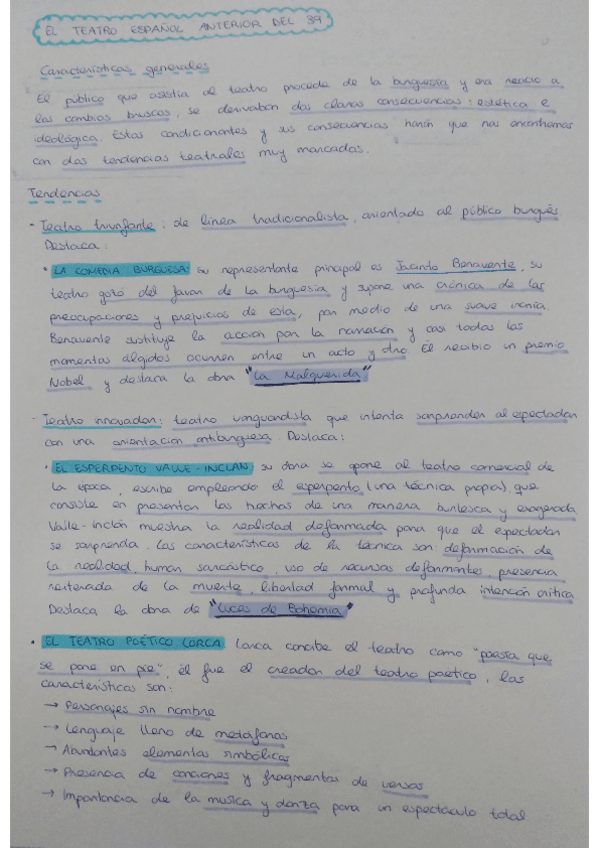 EL TEATRO ESPAÑOL ANTERIOR DEL 39
Características generales
El público que asistía al teatro procede de la burguesía y era reacio a
los cambios bruscos, se derivaban dos claras consecuencias: estética e
ideológica. Estas condicionantes y sus consecuencias harán que nos encontremos
con dos tendencias teatrales muy marcadas.
Tendencias
- Teatro triunfante: de línea tradicionalista, orientado al público burgués
Destaca:
• LA COMEDIA BURGUESA: su representante principal es Jacinto Benavente, su
teatro gozó del favor de la burguesía y supone una crónica de las
preocupaciones y prejuicios de esta, por medio de una suave ironía.
Benavente sustituye la acción por la narración y casi todos los
momentos álgidos ocurren entre un acto y otro. Él recibió un premio
Nobel y destaca la obra "La Malquerida"
- Teatro innovador: teatro vanguardista que intenta sorprender al espectador
con una orientación antiburguesa. Destaca:
• EL ESPERPENTO VALLE-INCLAN su obra se opone al teatro comercial de
la época, escribe empleando el esperpento (una técnica propia) que
consiste en presentar los hechos de una manera burlesca y exagerada
Valle-inclán muestra la realidad deformada para que el espectador
se sorprenda. Las características de la técnica son: deformación de
la realidad, humor sarcástico, uso de recursos deformantes, presencia
reiterada de la muerte, libertad formal y profunda intención crítica
Destaca la obra de "Luces de Bohemia"
• EL TEATRO POÉTICO LORCA Lorca concibe el teatro como "poesía que
se pone en pie", él fue el creador del teatro poético, las
características son:
→ Personajes sin nombre
→ Lenguaje lleno de metáforas
→ Abundantes elementos simbólicos
→ Presencia de canciones y fragmentos de versos
→ Importancia de la musica y danza para un espectáculo total